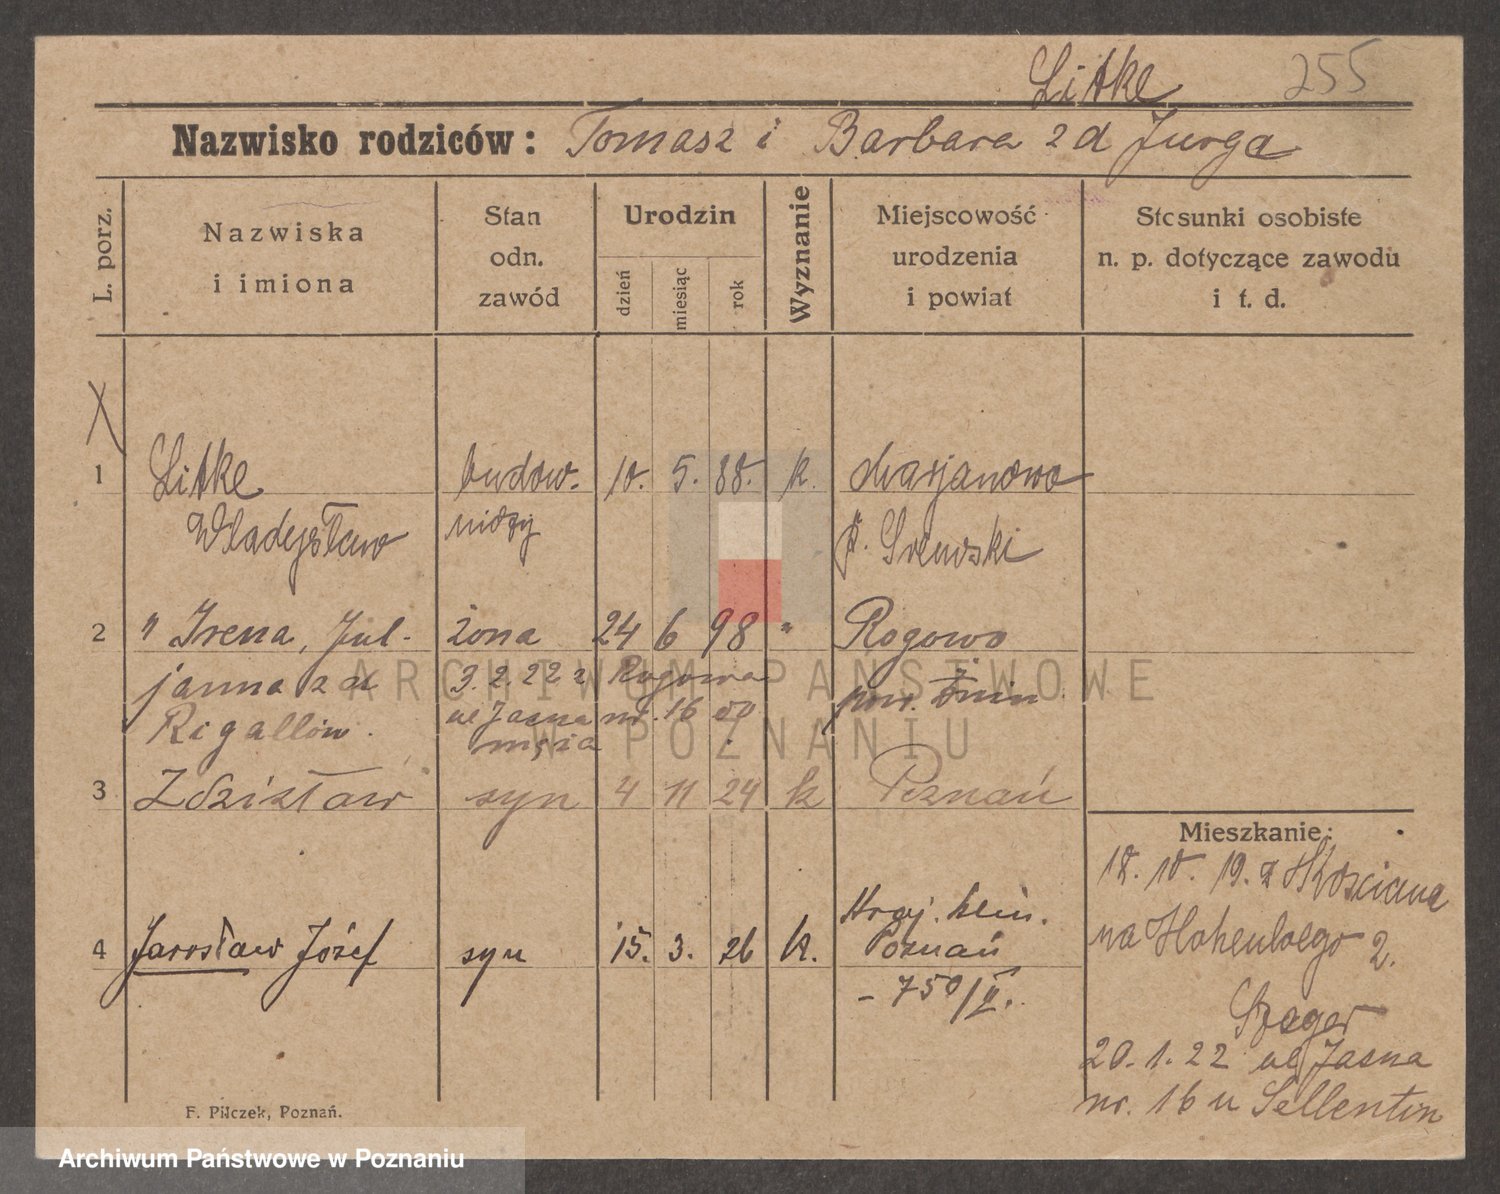 Litke 255
Nazwisko rodziców: Tomasz i Barbara z d Jurga
L. porz.
Nazwiska
i imiona
Stan
odn.
zawód
Urodzin
dzień
miesiąc
rok
Wyznanie
Miejscowość
urodzenia
i powiat
Stosunki osobiste
n. p. dotyczące zawodu
i t. d.
X
1 Litke budow. 10. 5. 88. k. Marjanowo
Władysław niczy p. Śremski
2 " Irena, Jul- żona 24 6 98 " Rogowo
janna z d 3.2.22 z Rogowa pow. Żnin
Rigallów. ul Jasna nr. 16 do
męża
3 Zdzisław syn 4 11 24 k Poznań
4 Jarosław Józef syn 15. 3. 26 k. Poznań
- 750/II.
Mieszkanie:
18. 10. 19. z Kościana
na Hohenloego 2.
Szager
20.1.22 ul Jasna
nr. 16 u Sellentin
F. Pilczek, Poznań.
ARCHIWUM PAŃSTWOWE
W POZNANIU
Archiwum Państwowe w Poznaniu